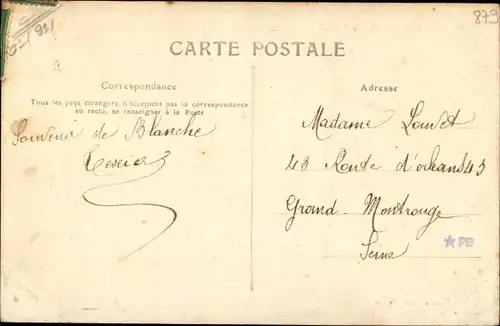 873
CARTE POSTALE
Correspondance
Tous les pays étrangers n'acceptent pas la correspondance
au recto, se renseigner à la Poste
Souvenir de Blanche
Adresse
Madame Louvet
43 Route d'orleans 43
Grand-Montrouge
Seine
PB